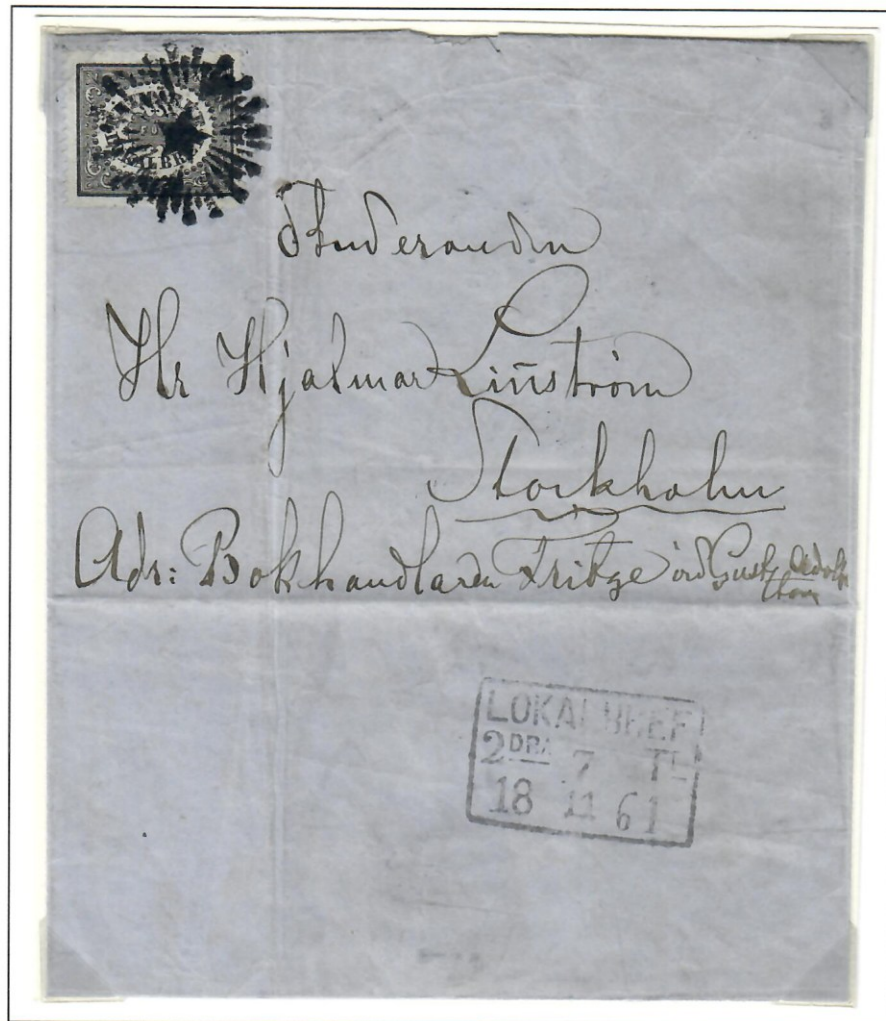 Studeranden
Hr Hjalmar Linström
Stockholm
Adr: Bokhandlaren Fritze vid Gust. Adolfs
torg
LOKALBREF
2DRA 7 TL
18 11 61